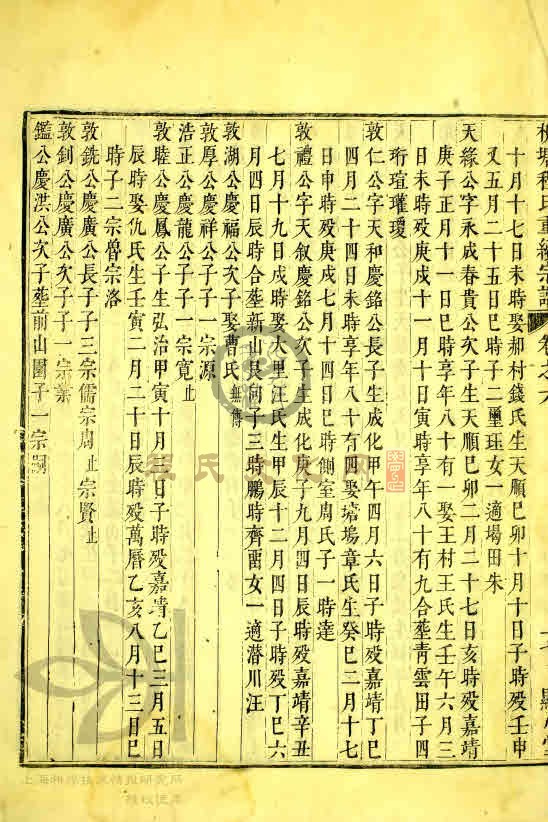 程氏重繕宗譜 卷之六
十月十七日未時娶郝村錢氏生天順己卯十月十日子時歿壬申
又五月二十五日巳時子二璽珏女一適場田朱
天緣公字永成春貴公次子生天順己卯二月二十七日亥時歿嘉靖
庚子正月十一日巳時享年八十有一娶王村王氏生壬午六月三
日未時歿庚戌十一月十日寅時享年八十有九合塟青雲田子四
珩瑄瓘瓊
敦仁公字天和慶銘公長子生成化甲午四月六日子時歿嘉靖丁巳
四月二十四日未時享年八十有四娶塘塢章氏生癸巳二月十七
日申時歿庚戌七月十四日巳時側室周氏子一時達
敦禮公字天叙慶銘公次子生成化庚子九月四日辰時歿嘉靖辛丑
七月十九日戌時娶大里汪氏生甲辰十二月四日子時歿丁巳六
月四日辰時合塟新山艮向子三時鵬時齊時雷女一適潛川汪
敦湖公慶福公次子娶曹氏無傳
敦厚公慶祥公子子一宗源
浩正公慶龍公子子一宗寬止
敦睦公慶鳳公子生弘治甲寅十月三日子時歿嘉靖乙巳三月五日
辰時娶仇氏生壬寅二月二十日辰時歿萬曆乙亥八月十三日巳
時子二宗僧宗洛
敦銑公慶廣公長子子三宗儒宗周止宗賢止
敦釗公慶廣公次子子一宗業
鑑公慶洪公次子塟前山園子一宗嗣
程氏文化网
上海科學技术情报研究所